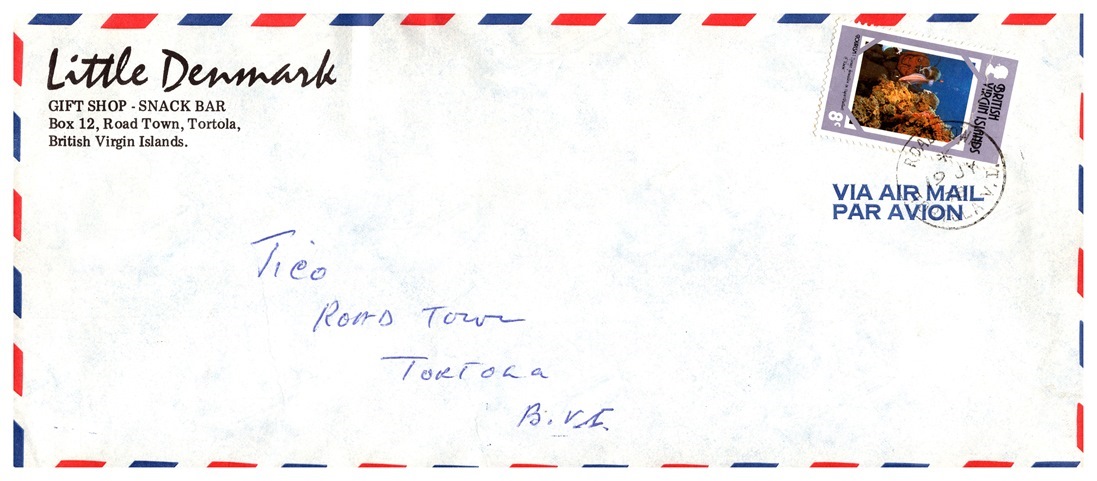 Little Denmark
GIFT SHOP - SNACK BAR
Box 12, Road Town, Tortola,
British Virgin Islands.
BRITISH
VIRGIN ISLANDS
8c
ROAD
VIA AIR MAIL
PAR AVION
Tico
ROAD TOWN
TORTOLA
B.V.I.